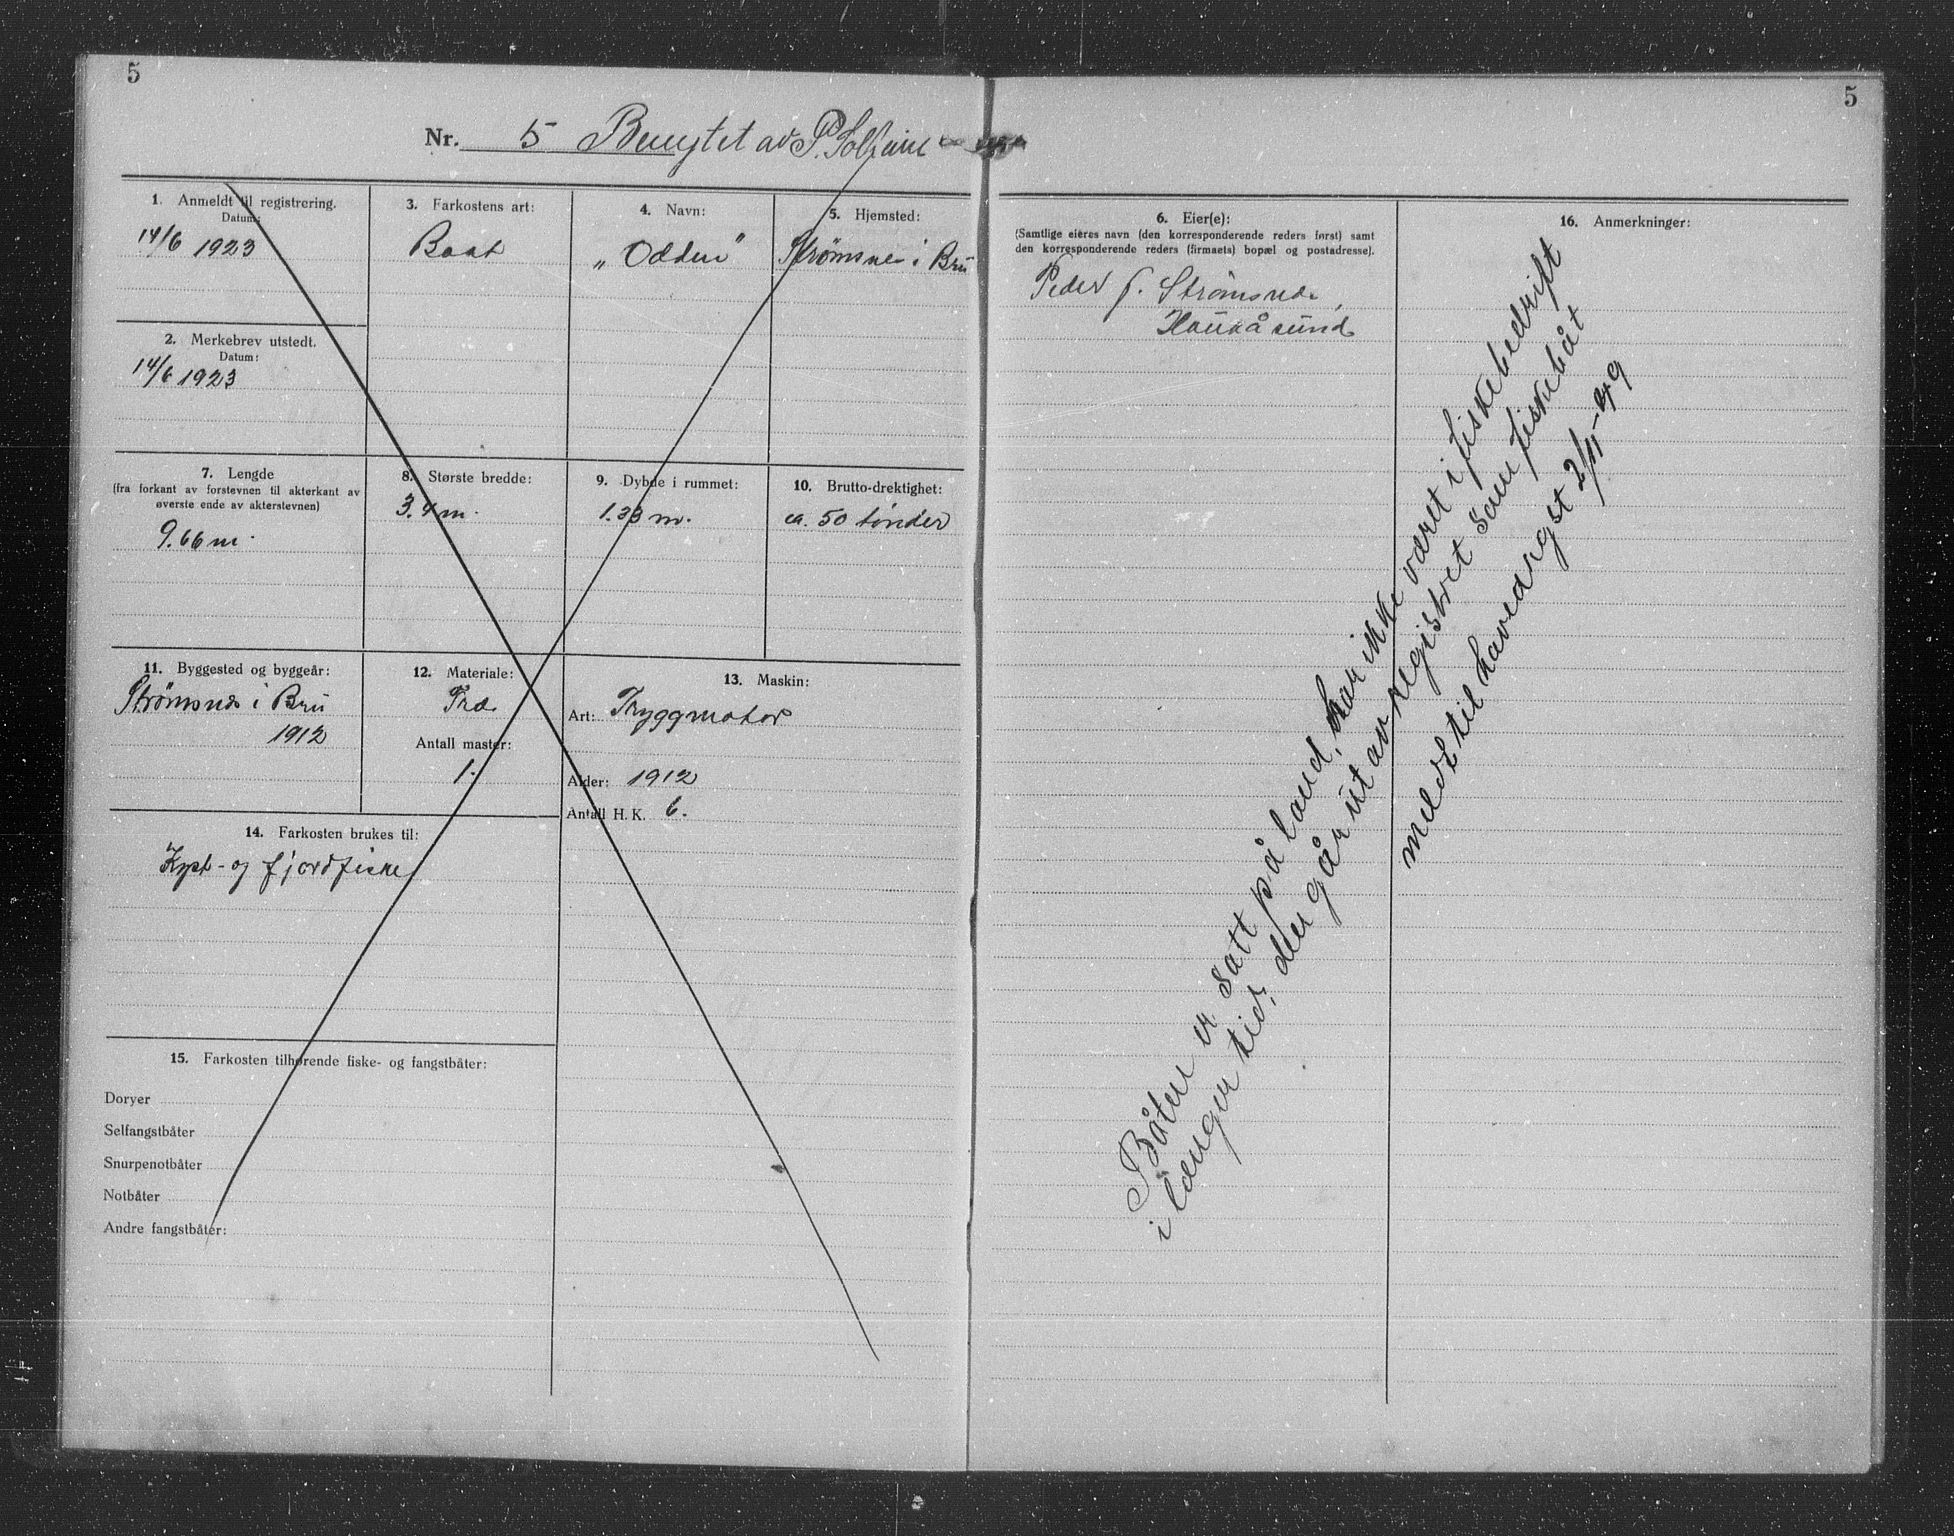 5
Nr. 5 Benyttet av P. Solheim
1. Anmeldt til registrering.
Datum:
14/6 1923
2. Merkebrev utstedt.
Datum:
14/6 1923
3. Farkostens art:
Baat
4. Navn:
„Odden"
5. Hjemsted:
Strømsnes i Bru
7. Lengde
(fra forkant av forstevnen til akterkant av
øverste ende av akterstevnen)
9.66 m.
8. Største bredde:
3.4 m.
9. Dybde i rummet:
1.33 m.
10. Brutto-drektighet:
ca. 50 tønder
11. Byggested og byggeår:
Strömsnes i Bru
1912
12. Materiale:
Træ
Antall master:
1.
13. Maskin:
Art: Tryggmotor
Alder: 1912
Antall H. K. 6.
14. Farkosten brukes til:
Kyst- og fjordfiske
15. Farkosten tilhørende fiske- og fangstbåter:
Doryer
Selfangstbåter
Snurpenotbåter
Notbåter
Andre fangstbåter:
5
6. Eier(e):
(Samtlige eieres navn (den korresponderende reders først) samt
den korresponderende reders (firmaets) bopæl og postadresse).
Peder J. Strømsnes,
Haukåsund
16. Anmerkninger:
Båten er satt på land, har ikke været i fiskebedrift
i længer tid, den går ut av registret som fiskebåt
meldt til havedrgst 2/11-49